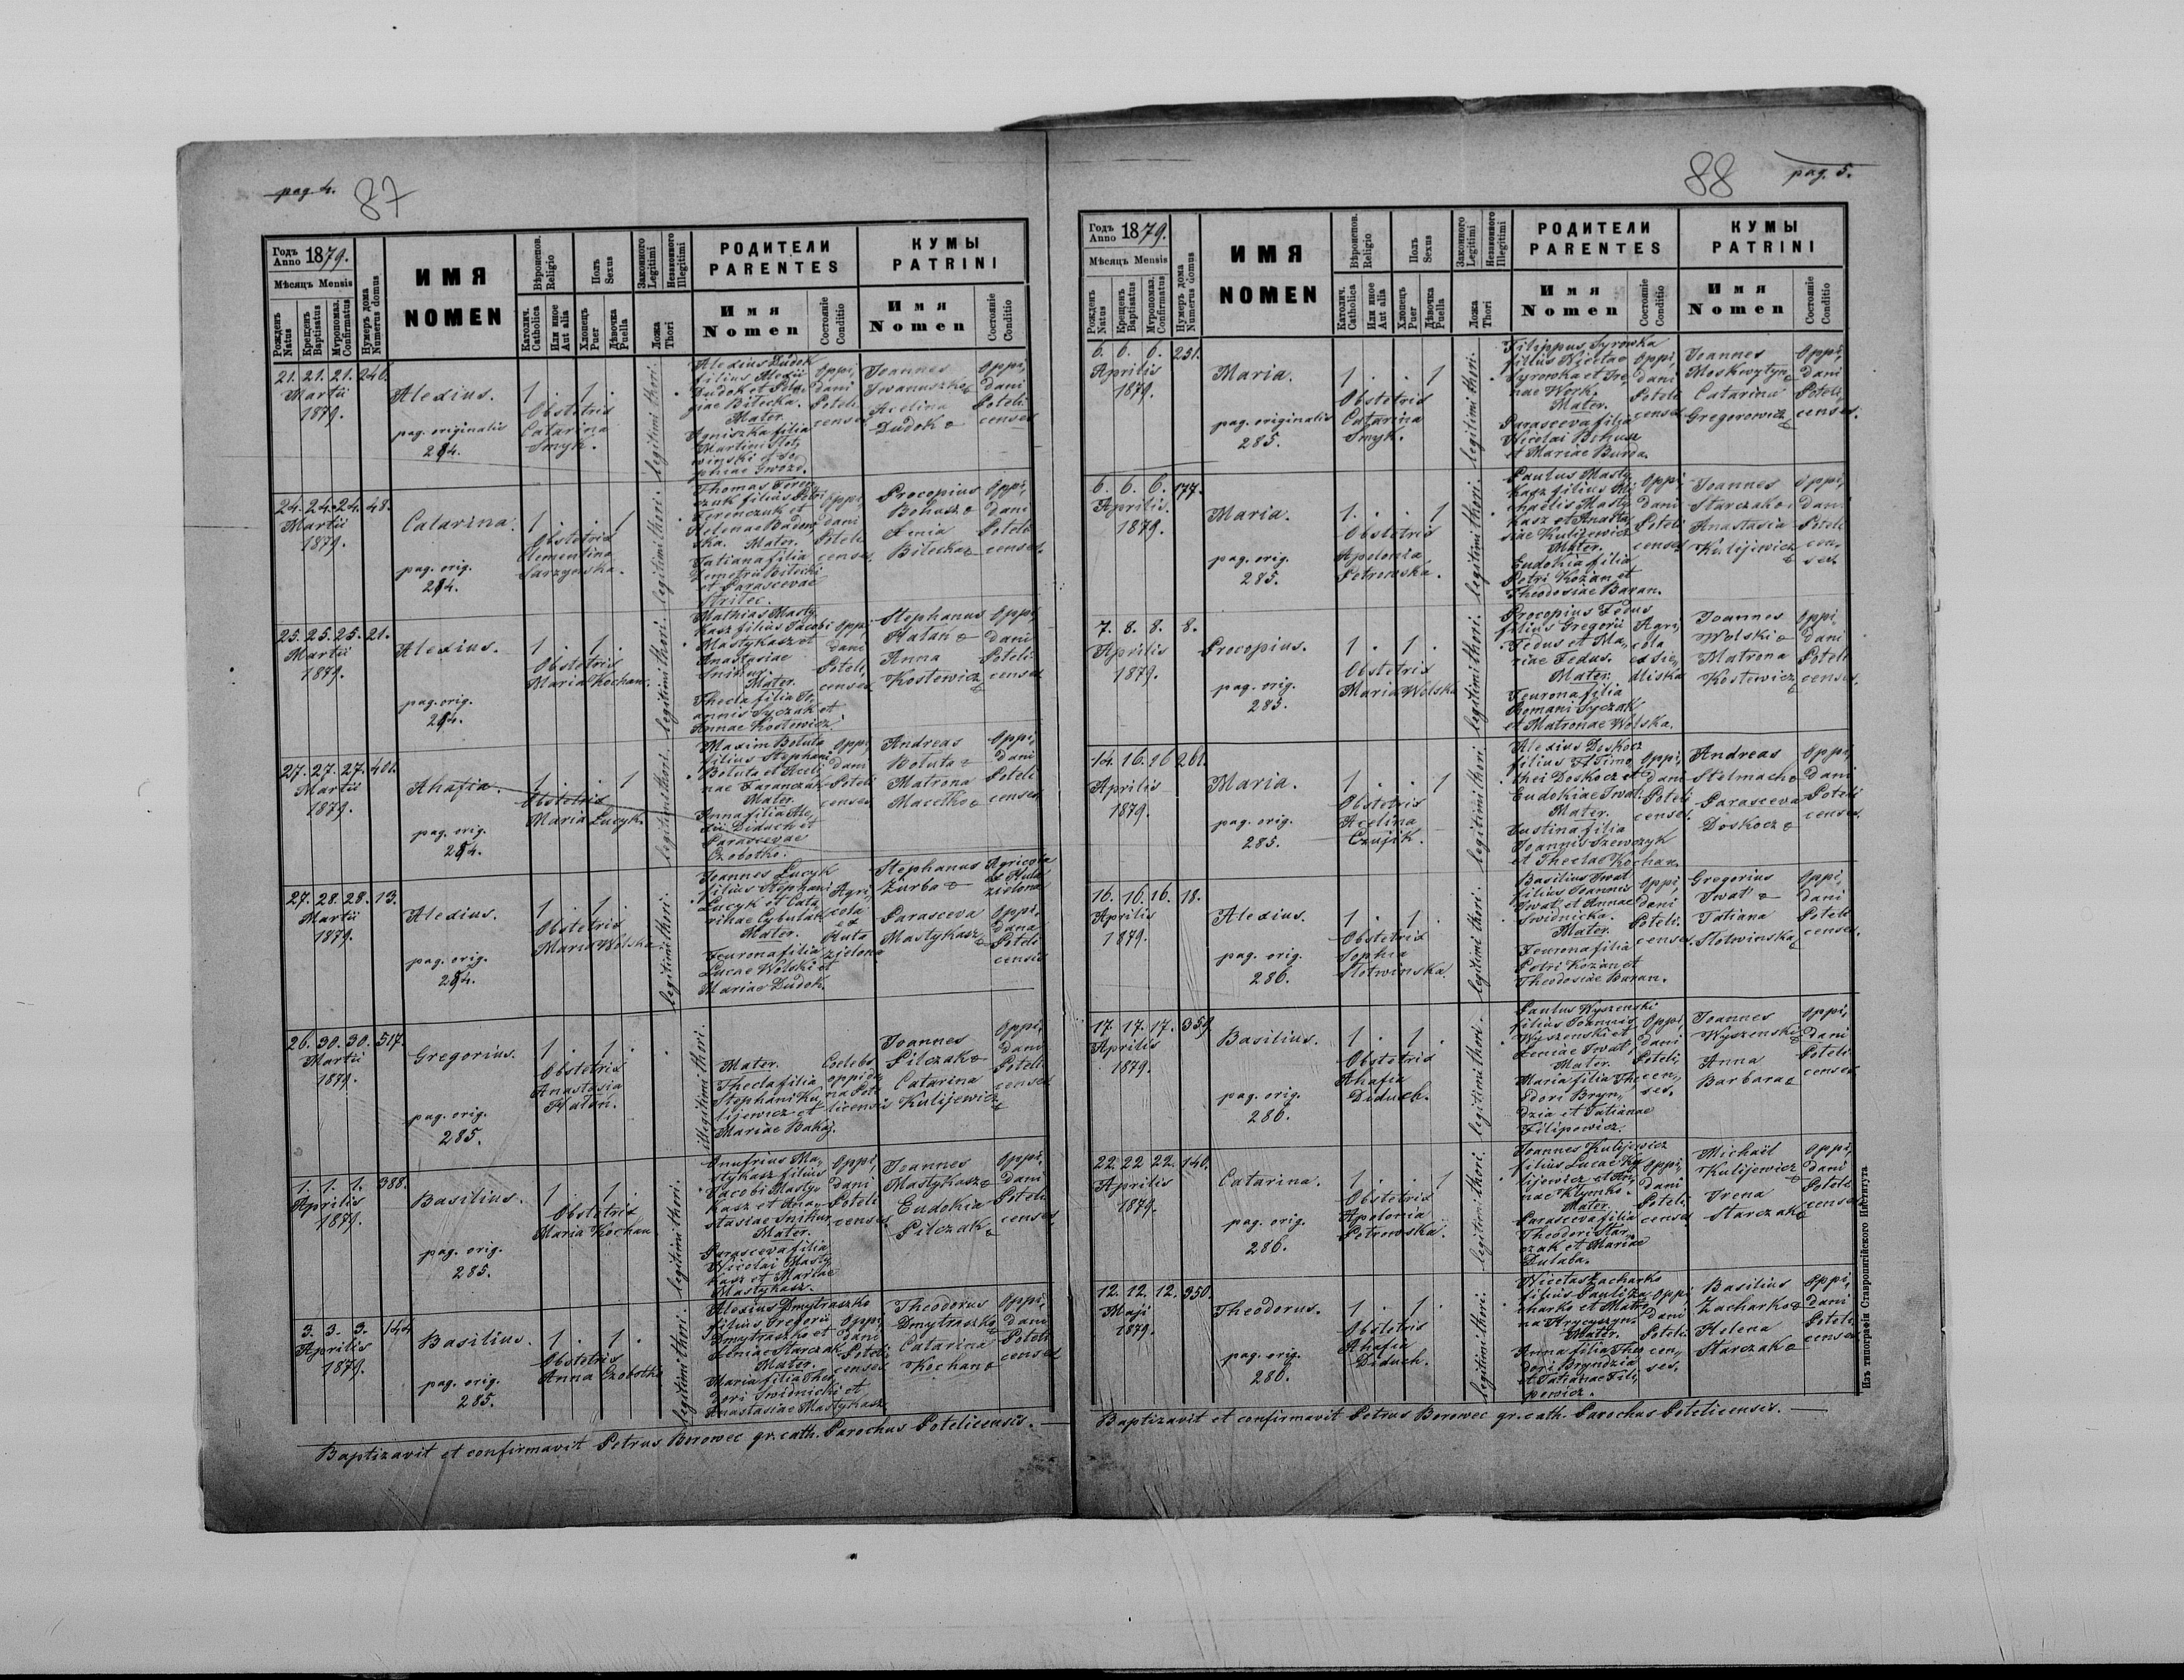 pag. 4.
87
Годъ
Anno 1879.
Мѣсяцъ Mensis
Рожденъ
Natus
Крещенъ
Baptisatus
Мѵропомаз.
Confirmatus
Нумеръ дома
Numerus domus
ИМЯ
NOMEN
Вѣроисповѣд.
Religio
Католич.
Catholica
Или иное
Aut alia
Полъ
Sexus
Хлопецъ
Puer
Дѣвочка
Puella
Законного
Legitimi
Незаконного
Illegitimi
Ложа
Thori
РОДИТЕЛИ
PARENTES
Имя
Nomen
Состояніе
Conditio
КУМЫ
PATRINI
Имя
Nomen
Состояніе
Conditio
21. 21. 21. 240.
Martii
1879.
Alexius.
pag. originalis
284.
1 . 1 .
Obstetrix
Catarina
Smyk.
legitimi thori.
Alexius Dudok
filius Alexii
Dudok et Pela,
giae Biłecka.
Mater.
Agniszka filia
Martini Słot,
winski et So,
phiae Gwozd.
Oppi,
dani
Poteli,
censes
Joannes
Iwanuszko &
Acelina
Dudok &
Oppi,
dani
Poteli
censes
24. 24. 24. 48.
Martii
1879.
Catarina.
pag. orig.
284.
1 . . 1
Obstetrix
Clementina
Sarzynska.
legitimi thori.
Thomas Feren,
czuk filius Petri
Ferenczuk et
Helenae Badow,
ska. Mater.
Tatiana filia
Demetrii Biłecki
et Parascevae
Strilec.
Oppi,
dani
Poteli
censes.
Procopius
Bohusz &
Xenia
Biłecka &
Oppi,
dani
Poteli
censes.
25. 25. 25. 21.
Martii
1879.
Alexius.
pag. orig.
284.
1 . 1 .
Obstetrix
Maria Kochan.
legitimi thori.
Mathias Masty,
kasz filius Jacobi
Mastykasz et
Anastasiae
Snihur.
Mater.
Thecla filia Jo,
annis Syczak et
Annae Kostewicz.
Oppi,
dani
Poteli,
censes
Stephanus
Hatan &
Anna
Kostewicz
&
Oppi,
dani
Poteli
censes
27. 27. 27. 401.
Martii
1879.
Ahafia.
pag. orig.
284.
1 . . 1
Obstetrix
Maria Lucyk.
legitimi thori.
Maxim Bołuta
filius Stephani
Bołuta et Aceli,
nae Faranczak
Mater.
Anna filia Ale,
xii Diduch et
Parascevae
Czobotko.
Oppi,
dani
Poteli
censes
Andreas
Bołuta &
Matrona
Macetko &
Oppi,
dani
Poteli
censes
27. 28. 28. 13.
Martii
1879.
Alexius.
pag. orig.
284.
1 . 1 .
Obstetrix
Maria Wolska
legitimi thori.
Joannes Lucyk
filius Stephani
Lucyk et Cata,
rinae Cybulak
Mater.
Feurona filia
Lucae Wolski et
Mariae Dudok.
Agri,
cola
ex
Huta
zielona
Stephanus
Zurba &
Parasceva
Mastykasz
&
Agricola
ex Huta
zielona
Oppi,
dana
Poteli
censis
26. 30. 30. 517.
Martii
1879.
Gregorius.
pag. orig.
285.
1 . 1 .
Obstetrix
Anastasia
Hatan.
illegitimi thori.
Mater.
Thecla filia
Stephani Ku,
lijewicz et
Mariae Bakaj.
Coelebs
oppida,
na Pot,
licensis
Joannes
Pilczak &
Catarina
Kulijewicz
&
Oppi,
dani
Poteli
censes
1. 1. 1. 388.
Aprilis
1879.
Basilius.
pag. orig.
285.
1 . 1 .
Obstetrix
Maria Kochan
legitimi thori.
Onufrius Ma,
stykasz filius
Jacobi Masty,
kasz et Ana,
stasiae Snihur.
Mater.
Parasceva filia
Nicolai Masty,
kasz et Mariae
Mastykasz.
Oppi,
dani
Poteli
censes
Joannes
Mastykasz &
Eudokia
Pilczak &
Oppi,
dani
Poteli
censes
3. 3. 3. 144
Aprilis
1879.
Basilius.
pag. orig.
285.
1 . 1 .
Obstetrix
Anna Czobotko
legitimi thori.
Alexius Dmytraszko
filius Gregorii
Dmytraszko et
Xeniae Starczak.
Mater.
Maria filia Theo,
dori Swidnicki et
Anastasiae Mastykasz.
Oppi,
dani
Poteli
censes
Theodorus
Dmytraszko
&
Catarina
Kochan &
Oppi,
dani
Poteli
censes
Baptizavit et confirmavit Petrus Borowec gr. cath. Parochus Potelicensis.
88
pag. 5.
Годъ
Anno 1879.
Мѣсяцъ Mensis
Рожденъ
Natus
Крещенъ
Baptisatus
Мѵропомаз.
Confirmatus
Нумеръ дома
Numerus domus
ИМЯ
NOMEN
Вѣроисповѣд.
Religio
Католич.
Catholica
Или иное
Aut alia
Полъ
Sexus
Хлопецъ
Puer
Дѣвочка
Puella
Законного
Legitimi
Незаконного
Illegitimi
Ложа
Thori
РОДИТЕЛИ
PARENTES
Имя
Nomen
Состояніе
Conditio
КУМЫ
PATRINI
Имя
Nomen
Состояніе
Conditio
6. 6. 6. 231.
Aprilis
1879.
Maria.
pag. originalis
285.
1 . . 1
Obstetrix
Catarina
Smyk.
legitimi thori.
Filippus Syrowka
filius Nicetae
Syrowka et Ire,
nae Work.
Mater.
Parasceva filia
Nicolai Bohusz
et Mariae Burda.
Oppi,
dani
Poteli
censes
Joannes
Moskwytyn
&
Catarina
Gregorowicz
&
Oppi,
dani
Poteli,
censes.
6. 6. 6. 177.
Aprilis.
1879.
Maria.
pag. orig.
285.
1 . . 1
Obstetrix
Apolonia
Petrowska.
legitimi thori.
Paulus Masty,
kasz filius Mi,
chaelis Masty,
kasz et Anasta,
siae Kulijewicz
Mater.
Eudokia filia
Petri Kozan et
Theodosiae Baran.
Oppi
dani
Poteli
censes
Joannes
Starczak &
Anastasia
Kulijewicz
&
Oppi,
dani
Poteli
cen,
ses.
7. 8. 8. 8.
Aprilis
1879.
Procopius.
pag. orig.
285.
1 . 1 .
Obstetrix
Maria Wolska
legitimi thori.
Procopius Fedus
filius Gregorii
Fedus et Ma,
riae Fedus.
Mater.
Feurona filia
Romani Syczak
et Matronae Wolska.
Agri,
cola
ex Sie,
dliska
Joannes
Wolski &
Matrona
Kostewicz
&
Oppi,
dani
Poteli
censes.
14. 16. 16 261.
Aprilis
1879.
Maria.
pag. orig.
285.
1 . . 1
Obstetrix
Acelina
Czufik.
legitimi thori.
Alexius Doskocz
filius Timo,
thei Doskocz et
Eudokiae Iwat.
Mater.
Justina filia
Joannis Szewczyk
et Theclae Kochan.
Oppi,
dani
Poteli
censes.
Andreas
Stelmach &
Parasceva
Doskocz &
Oppi,
dani
Poteli
censes.
16. 16. 16. 18.
Aprilis
1879.
Alexius.
pag. orig.
286.
1 . 1 .
Obstetrix
Sophia
Słotwinska
legitimi thori.
Basilius Iwat
filius Joannis
Iwat et Annae
Swidnicka.
Mater.
Feurona filia
Petri Kozan et
Theodosiae Baran.
Oppi,
dani
Poteli.
censes.
Gregorius
Iwat &
Tatiana
Słotwinska
&
Oppi,
dani
Poteli
censes.
17. 17. 17. 359.
Aprilis
1879.
Basilius.
pag. orig.
286.
1 . 1 .
Obstetrix
Ahafia
Diduch.
legitimi thori.
Paulus Wyszenski
filius Joannis
Wyszenski et
Xeniae Iwat.
Mater.
Maria filia Theo,
dori Bryn,
dzia et Tatianae
Filipowicz.
Oppi,
dani
Poteli,
cen,
ses.
Joannes
Wyszenski
&
Anna
Barbara &
Oppi,
dani
Poteli
censes
22. 22 22. 140.
Aprilis
1879.
Catarina.
pag. orig.
286.
1 . . 1
Obstetrix
Apolonia
Petrowska.
legitimi thori.
Joannes Kulijewicz
filius Lucae Ku,
lijewicz et An,
nae Klymko.
Mater.
Parasceva filia
Theodori Star,
czak et Mariae
Dulaba.
Oppi,
dani
Poteli
censes
Michaił
Kulijewicz
&
Irena
Starczak &
Oppi,
dani
Poteli
censes
12. 12. 12. 350.
Maji
1879.
Theodorus.
pag. orig.
286.
1 . 1 .
Obstetrix
Ahafia
Diduch.
legitimi thori.
Nicetas Zacharko
filius Pauli Za,
charko et Matro,
na Hrycyszyn.
Mater.
Anna filia Theo,
dori Bryndzia
et Tatianae Fili,
powicz.
Oppi
dani
Poteli
cen,
ses.
Basilius
Zacharko &
Helena
Starczak &
Oppi,
dani
Poteli,
censes
Baptizavit et confirmavit Petrus Borowec gr. cath. Parochus Potelicensis.
Изъ типографіи Ставропигійского Института